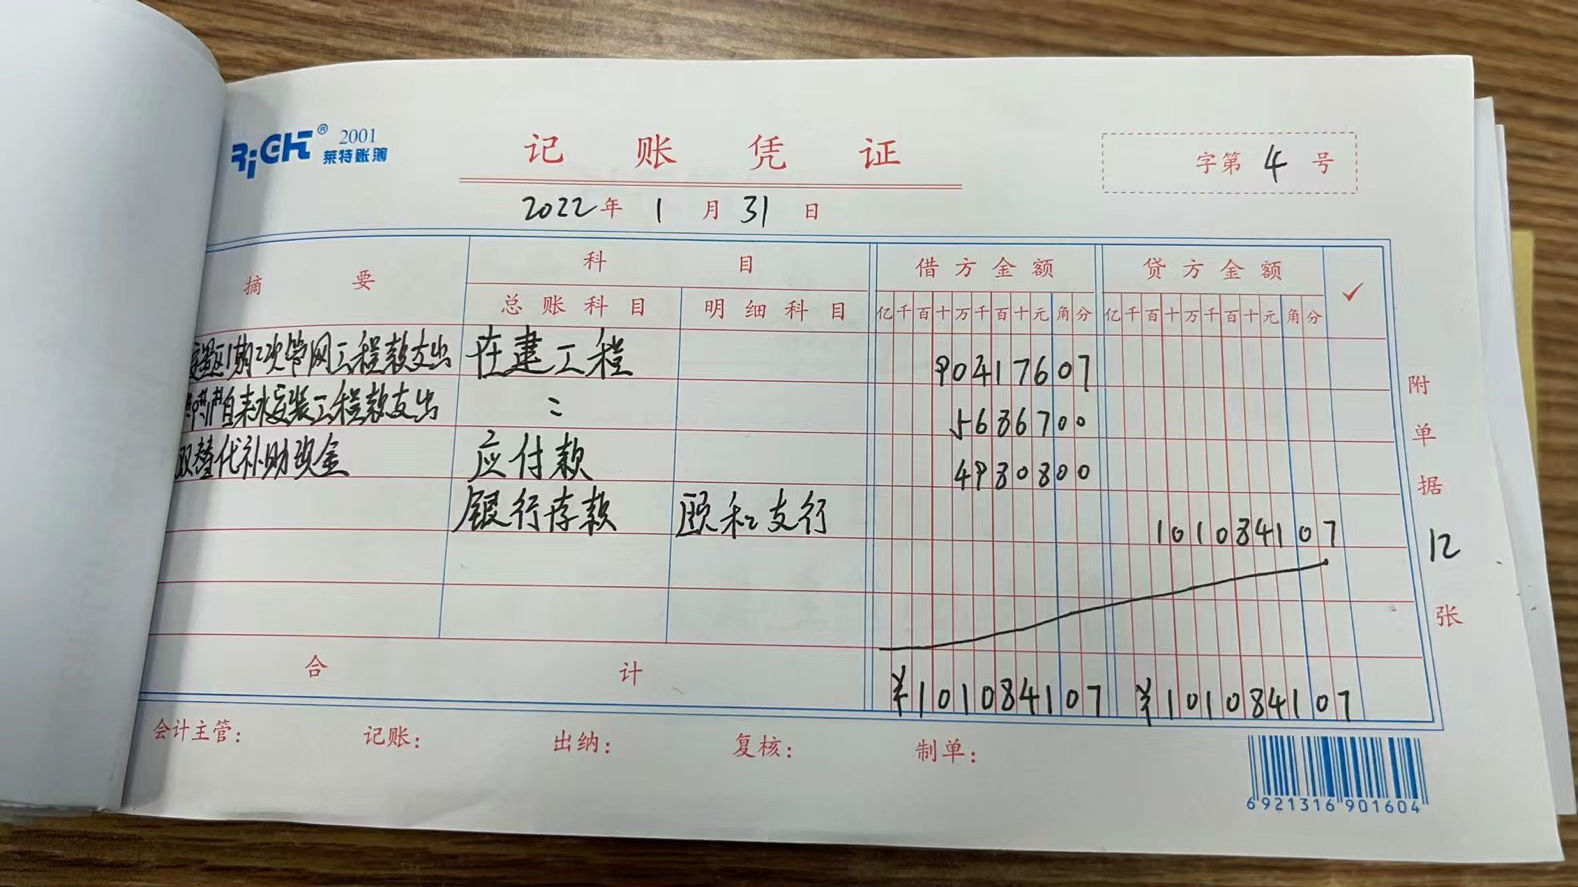 RiGHT® 2001
莱特账簿
记账凭证
字第 4 号
2022年 1 月 31 日
摘要 科目 借方金额 贷方金额 ✓
总账科目 明细科目 亿千百十万千百十元角分 亿千百十万千百十元角分
期二次管网工程款支出 在建工程 90417607
自来水安装工程款支出 〃 5686700
双替代补助资金 应付款 4980800
银行存款 颐和支行 101084107
合计 ¥101084107 ¥101084107
附单据 12 张
会计主管: 记账: 出纳: 复核: 制单:
6921316901604